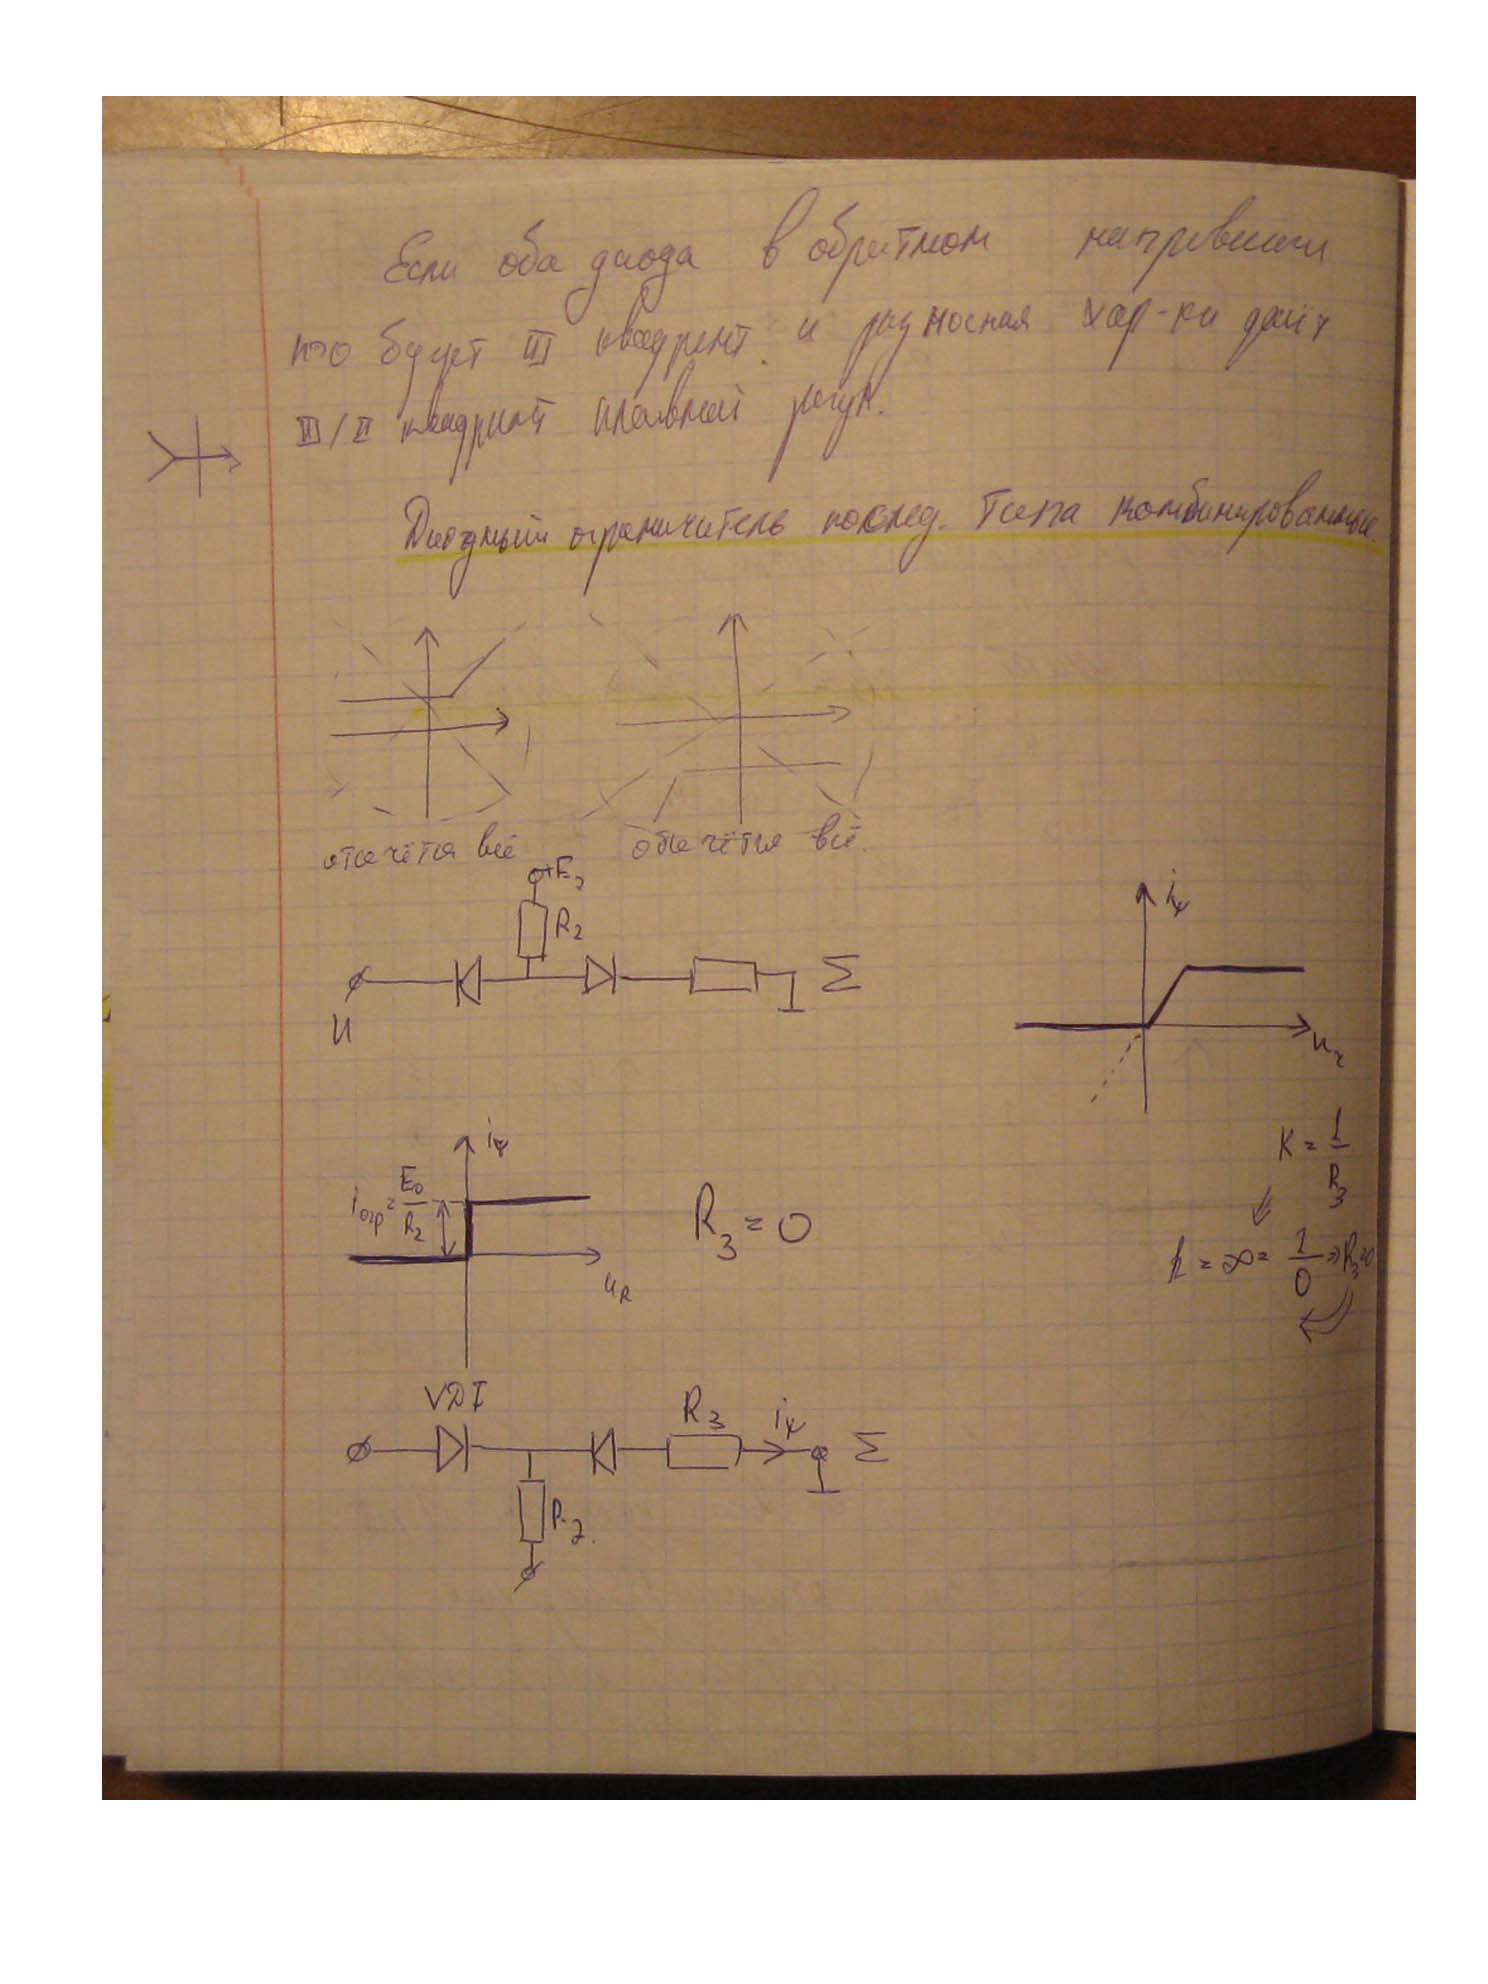 Если оба диода в обратном
то будет III квадрант и разносная хар-ки даёт
III/II квадрант плавной регул.
Диодный ограничитель послед. типа комбинированные.
отсечётся всё
отсечётся всё.
+E
R2
И
Σ
iψ
iψ
iогр = E0/R2
uR
R3 = 0
K = 1/R3
k = ∞ = 1/0 => R3=0
VD1
R3
iψ
Σ
R2.